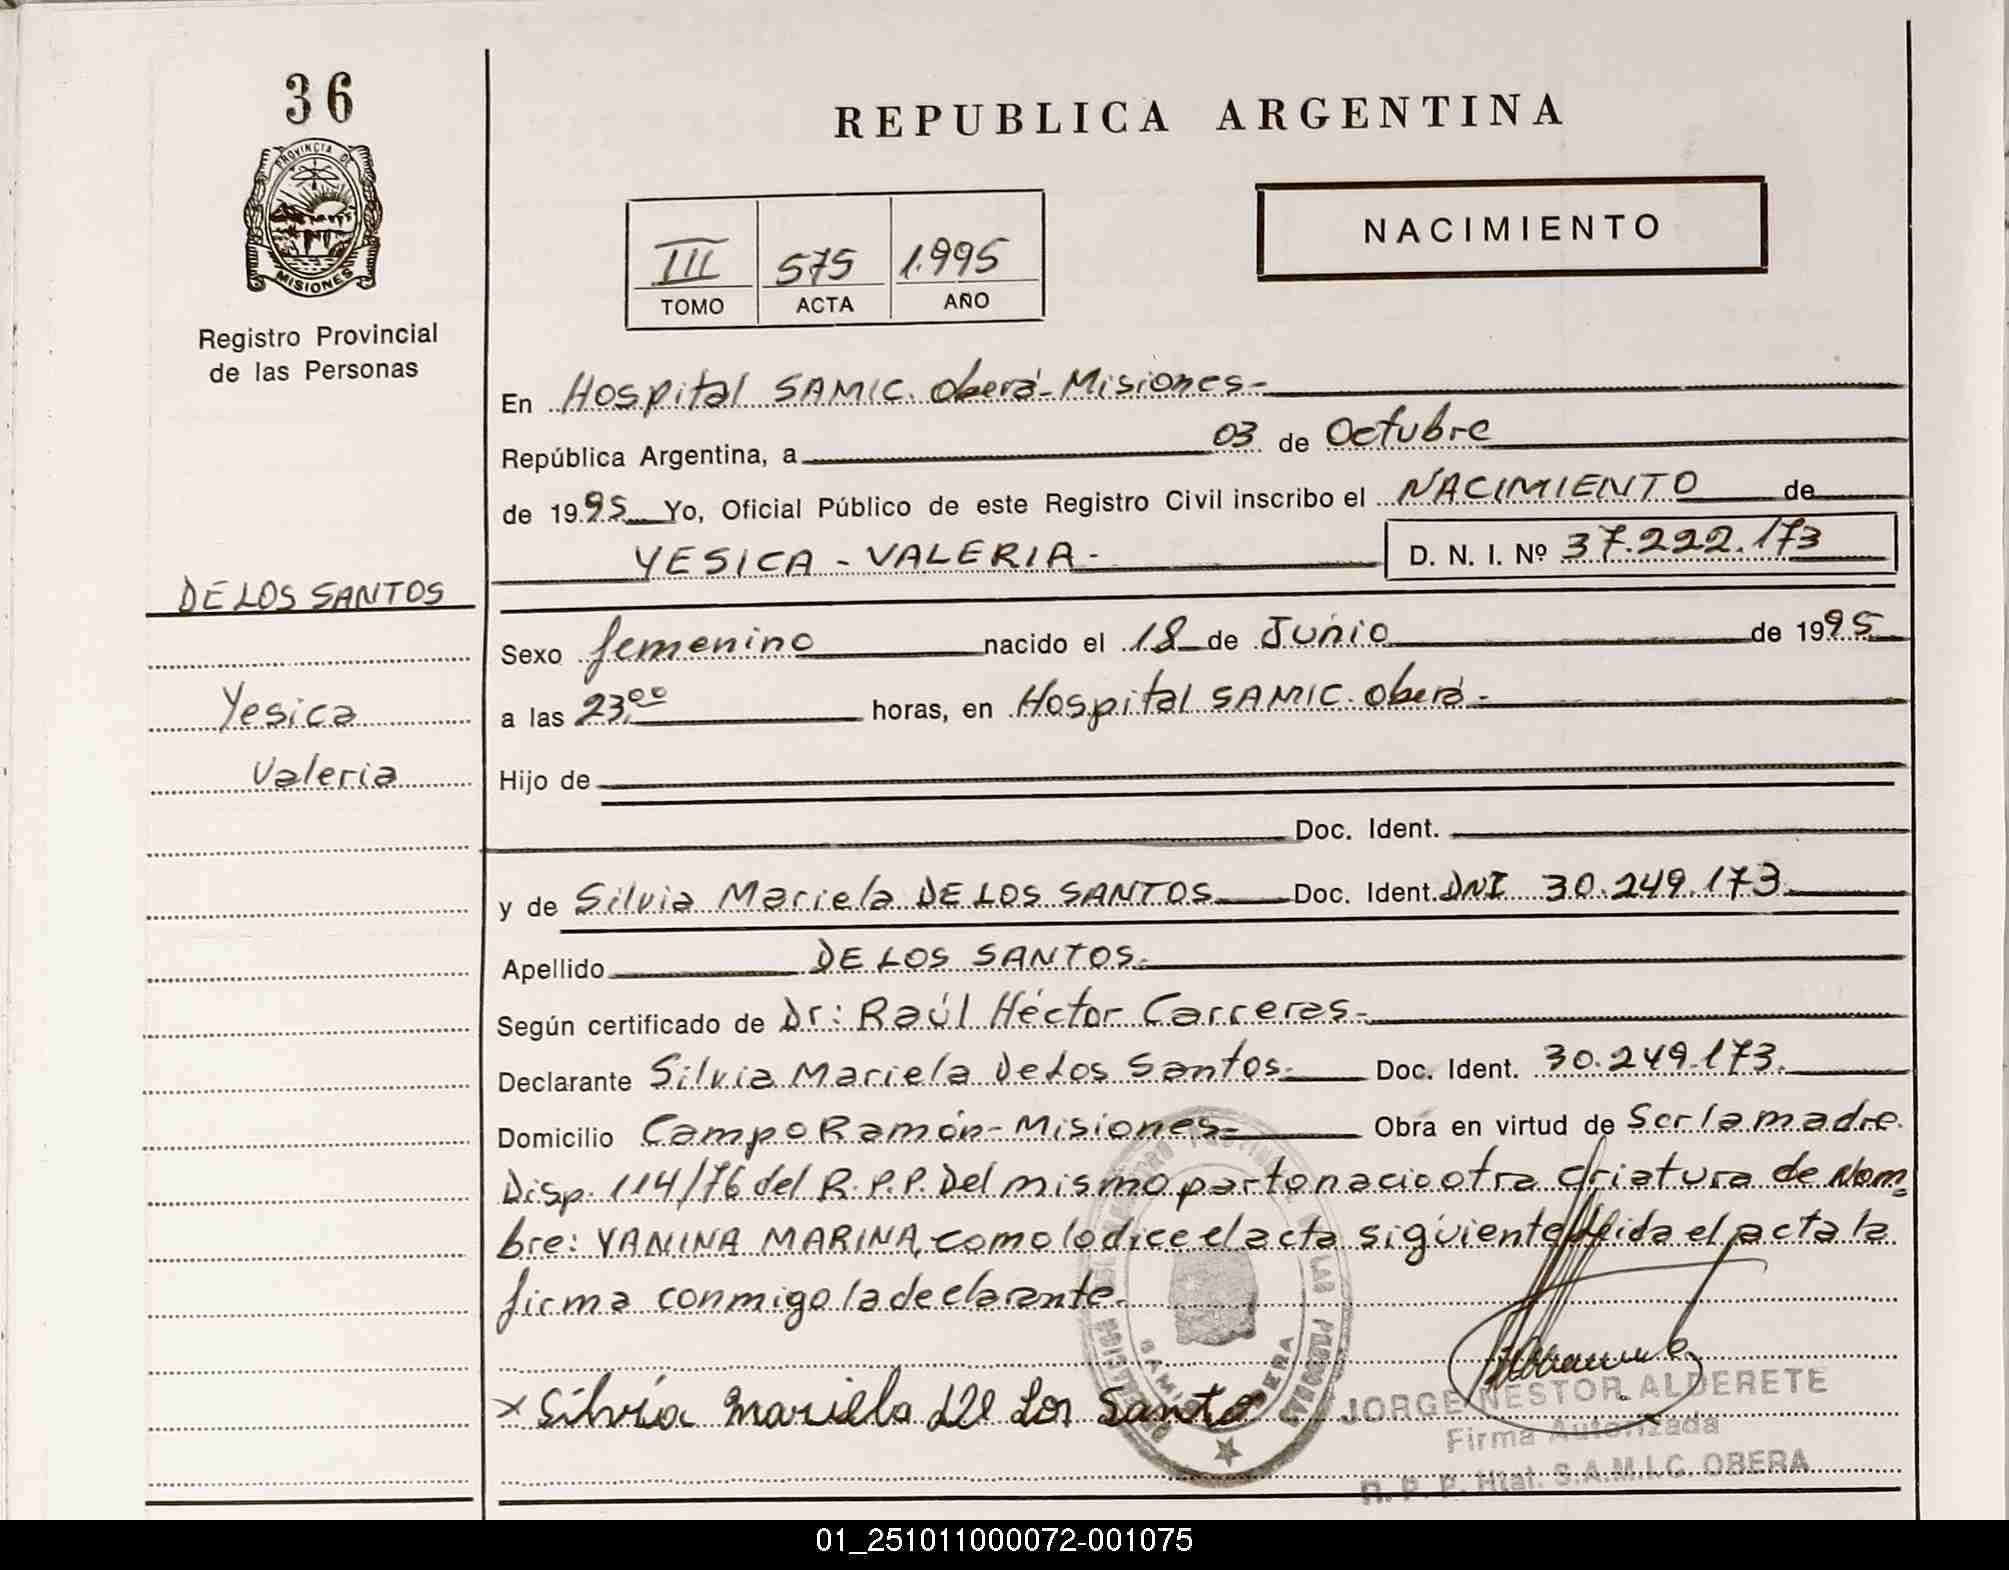 36
PROVINCIA DE
MISIONES
Registro Provincial
de las Personas
DE LOS SANTOS
Yesica
Valeria
REPUBLICA ARGENTINA
III 575 1.995
TOMO ACTA AÑO
NACIMIENTO
En Hospital SAMIC. Oberá-Misiones-
República Argentina, a 03 de Octubre
de 1995 Yo, Oficial Público de este Registro Civil inscribo el NACIMIENTO de
YESICA - VALERIA - D. N. I. Nº 37.222.173
Sexo femenino nacido el 18 de Junio de 1995
a las 23,00 horas, en Hospital SAMIC. Oberá-
Hijo de
Doc. Ident.
y de Silvia Mariela DE LOS SANTOS Doc. Ident. DNI 30.249.173
Apellido DE LOS SANTOS-
Según certificado de Dr: Raúl Héctor Carreras-
Declarante Silvia Mariela De Los Santos- Doc. Ident. 30.249.173.
Domicilio Campo Ramón-Misiones- Obra en virtud de Ser la madre.
Disp. 114/76 del R.P.P. Del mismo parto nacio otra criatura de Nom=
bre: YANINA MARINA, como lo dice el acta siguiente leida el acta la
firma conmigo la declarante.
x Silvia Mariela De Los Santo
JORGE NESTOR ALDERETE
Firma Autorizada
R. P. P. Htal. S.A.M.I.C. OBERA
01_251011000072-001075